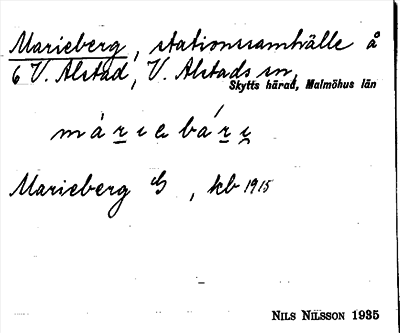 Marieberg, stationssamhälle å
6 V. Alstad, V. Alstads sn,
Skytts härad, Malmöhus län
Marieberg G, kb 1915
NILS NILSSON 1935